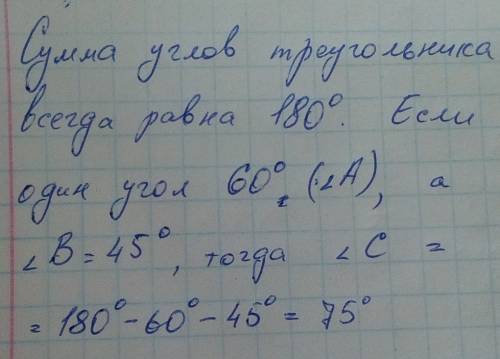 Сумма углов треугольника
всегда равна 180°. Если
один угол 60° (∠A), а
∠B = 45°, тогда ∠C =
= 180° - 60° - 45° = 75°